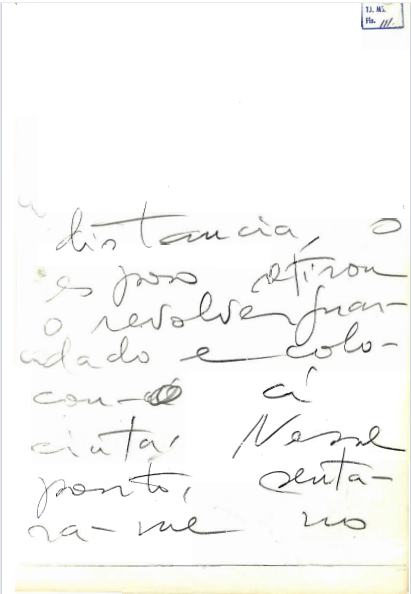 TJ. MS.
Fls. 111.
distancia, o
esposo retirou
o revolver guar-
dado e colo-
cou-o á
cinta, Nesse
ponto, senta-
ra-me no